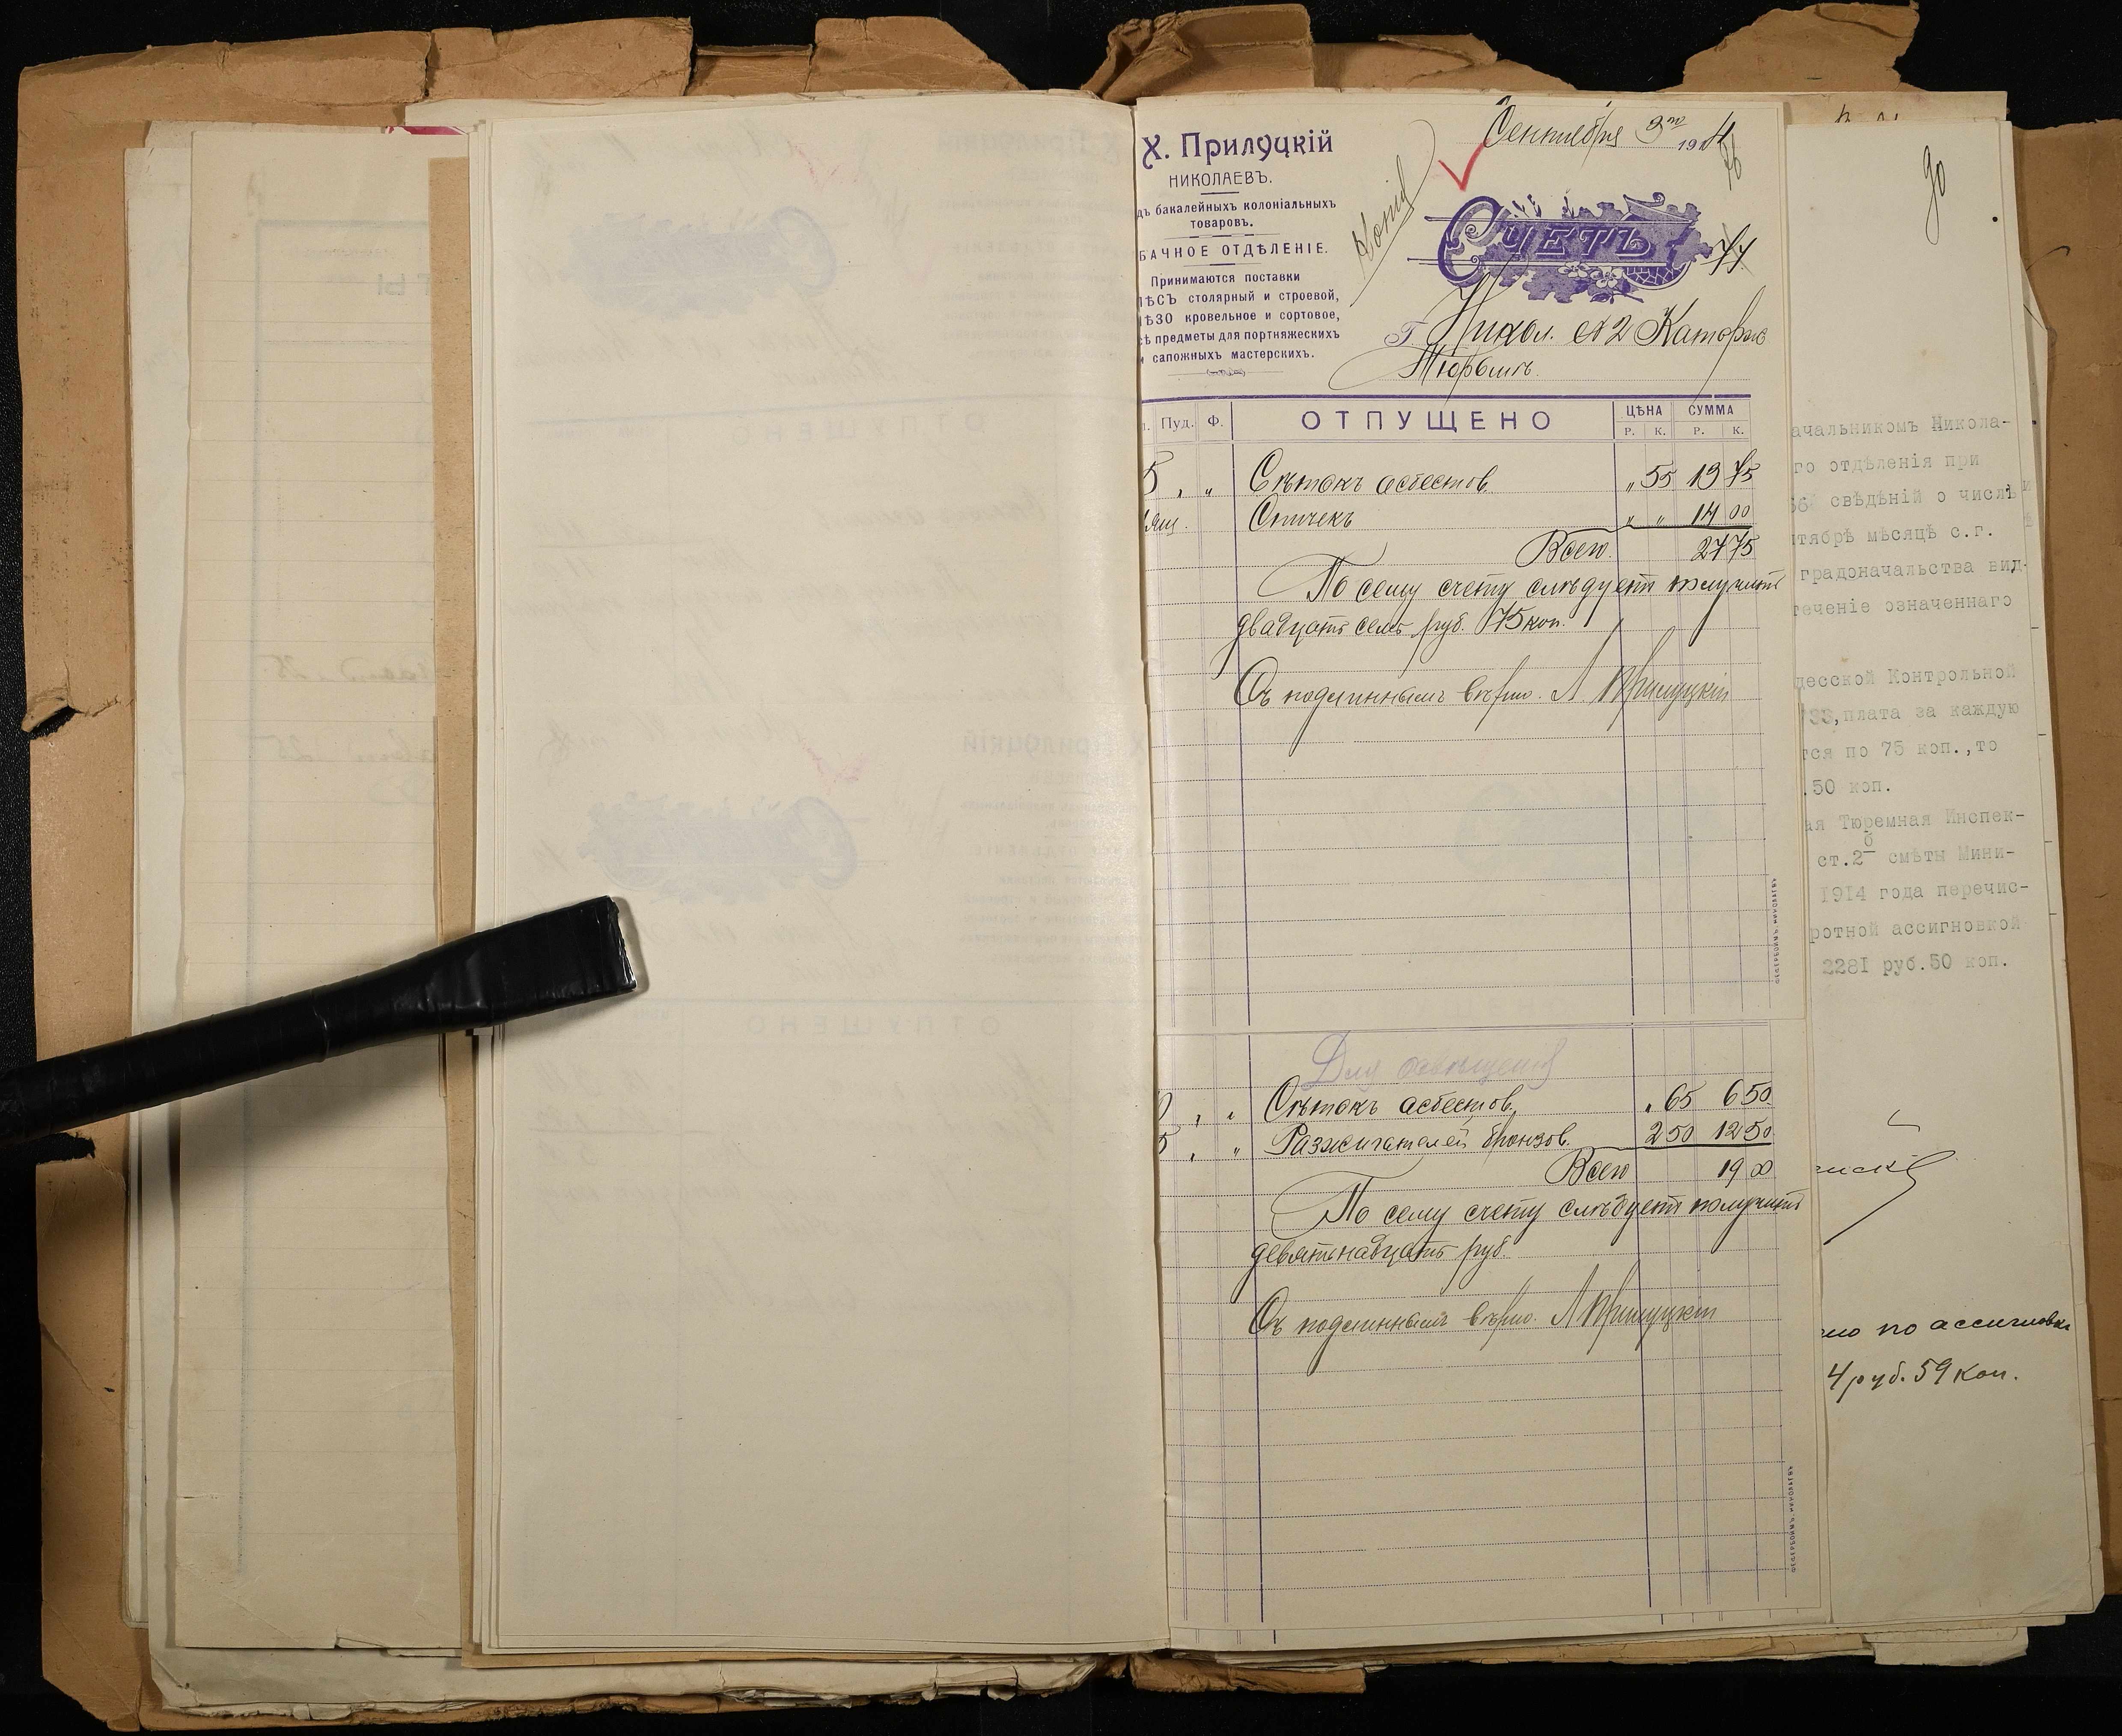 Сентября 3го 1914
90
Х. Прилуцкій
НИКОЛАЕВЪ.
дъ бакалейныхъ колоніальныхъ
товаровъ.
БАЧНОЕ ОТДѢЛЕНІЕ.
Принимаются поставки
ЛѢСЪ столярный и строевой,
ЛѢЗО кровельное и сортовое,
сѣ предметы для портняжескихъ
и сапожныхъ мастерскихъ.
Копія
СЧЕТЪ
77
Г. Никол. № 2 Каторж
Тюрьмѣ.
Пуд. Ф. ОТПУЩЕНО ЦѢНА СУММА
Р. К. Р. К.
5 " " Сѣтокъ асбестов. " 55 13 75
ящ. Спичекъ " " 14 00
Всего. 27 75
По сему счету слѣдуетъ получить
двадцать семь руб. 75 коп.
Съ подлиннымъ вѣрно. Л. Прилуцкій
ФЕДЕРБОЙМЪ, НИКОЛАЕВЪ
Для освѣщенія
0 " " Сѣтокъ асбестов. " 65 6 50
5 " " Разжигателей бронзов. 2 50 12 50
Всего 19 00
По сему счету слѣдуетъ получить
девятнадцать руб.
Съ подлиннымъ вѣрно. Л Прилуцкій
ФЕДЕРБОЙМЪ, НИКОЛАЕВЪ
ачальникомъ Никола-
го отдѣленія при
свѣдѣній о числѣ
тябрѣ мѣсяцѣ с.г.
градоначальства вид-
теченіе означеннаго
десской Контрольной
733, плата за каждую
тся по 75 коп., то
.50 коп.
ая Тюремная Инспек-
ст.2б смѣты Мини-
1914 года перечис-
ротной ассигновкой
2281 руб.50 коп.
но по ассигновкѣ
4 руб. 59 коп.